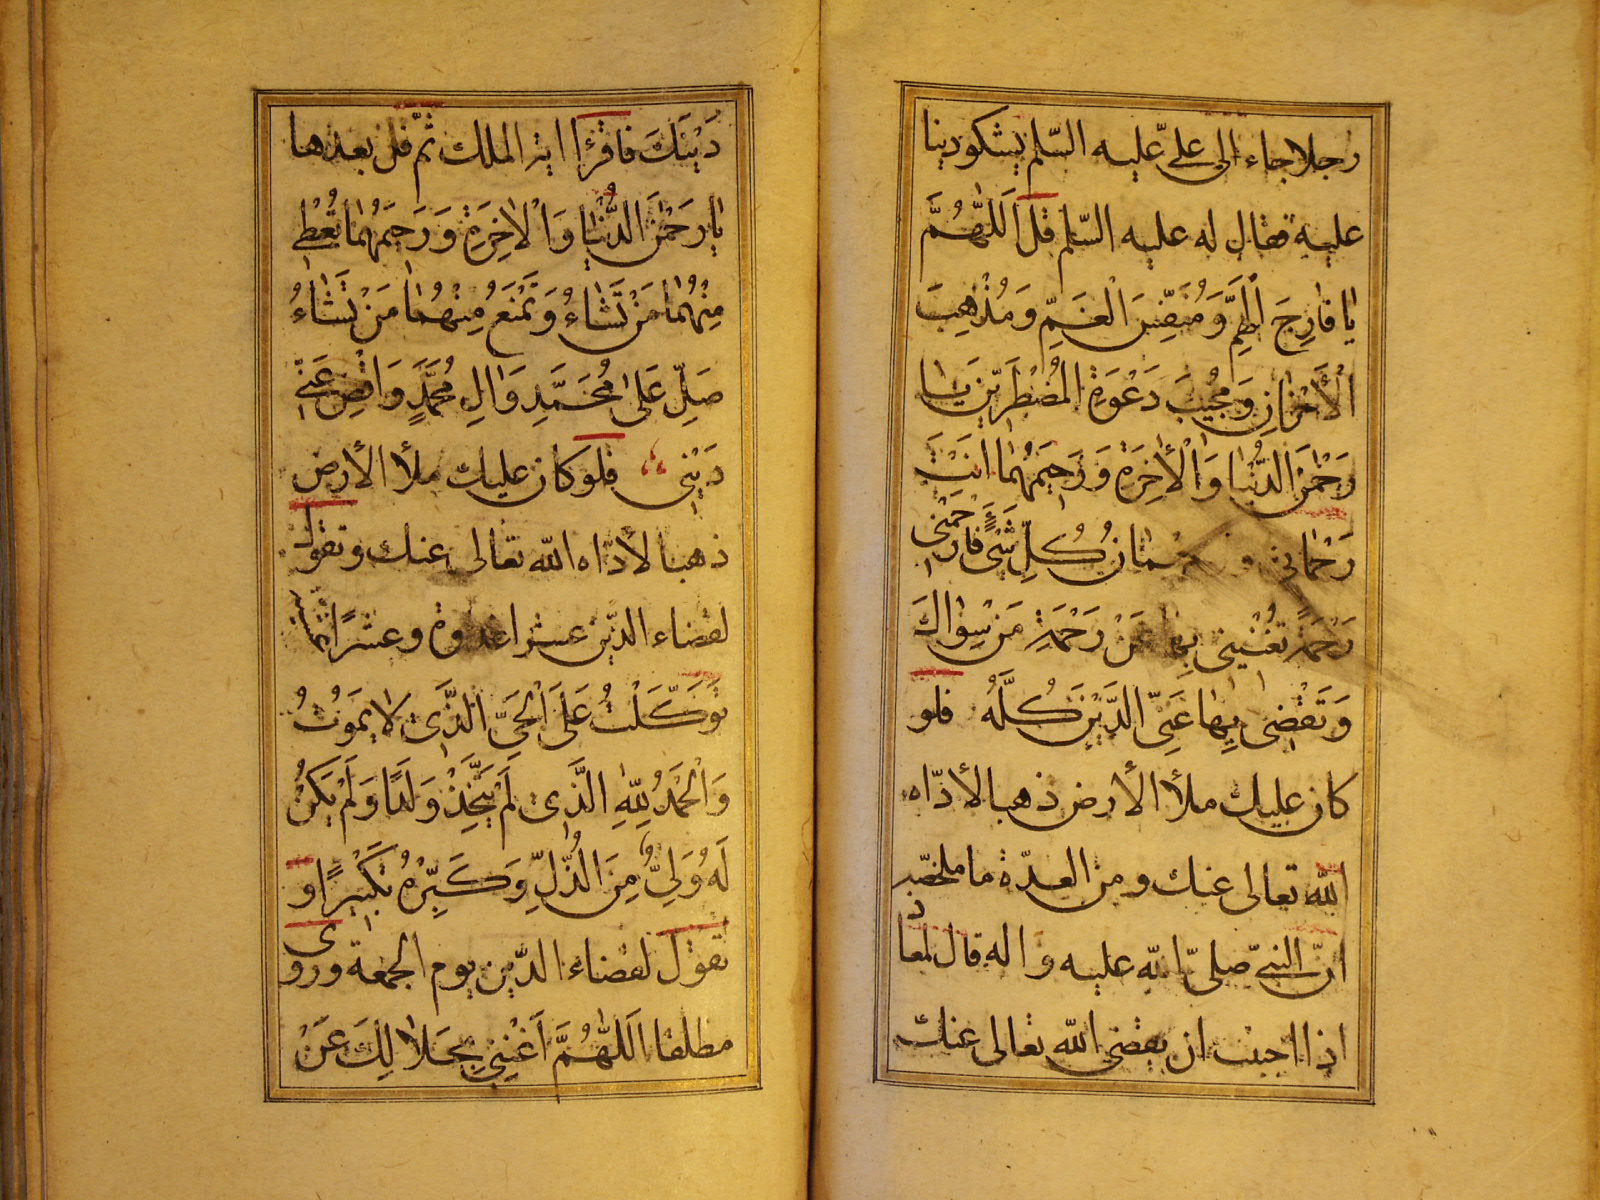 رجلا جاء الى علىّ عليه السّلم يشكو دينا
عليه فقال له عليه السّلم قل اَللّٰهُمَّ
يٰا فٰارِجَ الْهَمِّ وَ مُنَفِّسَ الْغَمِّ وَ مُذْهِبَ
الْأَحْزٰانِ وَ مُجِيبَ دَعْوَةِ الْمُضْطَرّينَ يٰا
رَحْمٰنَ الدُّنْيٰا وَ الْأٰخِرَةِ وَ رَحِيمَهُمٰا اَنْتَ
رَحْمٰانى و رحمٰان كُلِّ شَىْءٍ فَارْحَمْنى
رَحْمَةً تُغْنينى بِهٰا عَنْ رَحْمَةِ مَنْ سِوٰاكَ
وَ تَقْضى بِهٰا عَنِّى الدَّيْنَ كُلَّهُ فلو
كان عليك ملأ الأرض ذهبا لأدّاه
اللّه تعالى عنك و من العدّة ما ملخصه
انّ النبىّ صلى اللّه عليه و اله قال لمعاد
اذا احببت ان يقضى اللّه تعالى عنك
دَيْنَكَ فاقرَأ اية الملك ثم قل بعدها
يٰا رَحْمٰنَ الدُّنْيٰا وَ الْاٰخِرَةِ وَ رَحيمَهُمٰا تُعْطى
مِنْهُمٰا مَنْ تَشٰاءُ وَ تَمْنَعُ مِنْهُمٰا مَنْ تَشٰاءُ
صَلِّ عَلىٰ مُحَمَّدٍ وَ اٰلِ مُحَمَّدٍ وَ اقْضِ عَنّى
دَيْنى فلو كان عليك ملأ الأرض
ذهبا لأدّاه اللّه تعالى عنك و تقول
لقضاء الدّين عشرا غدوة و عشرًا عشية
تَوَكَّلْتُ عَلَى الْحَىِّ الَّذى لٰا يَمُوتُ
وَ الْحَمْدُ لِلّٰهِ الَّذى لَمْ يَتَّخِذْ وَلَدًا وَ لَمْ يَكُنْ
لَهُ وَلِىٌّ مِنَ الذُّلِّ وَ كَبِّرْهُ تَكْبيرًا و
تقول لقضاء الدّين يوم الجمعة و روى
مطلقا اَللّٰهُمَّ اَغْنِنى بِحَلٰالِكَ عَنْ